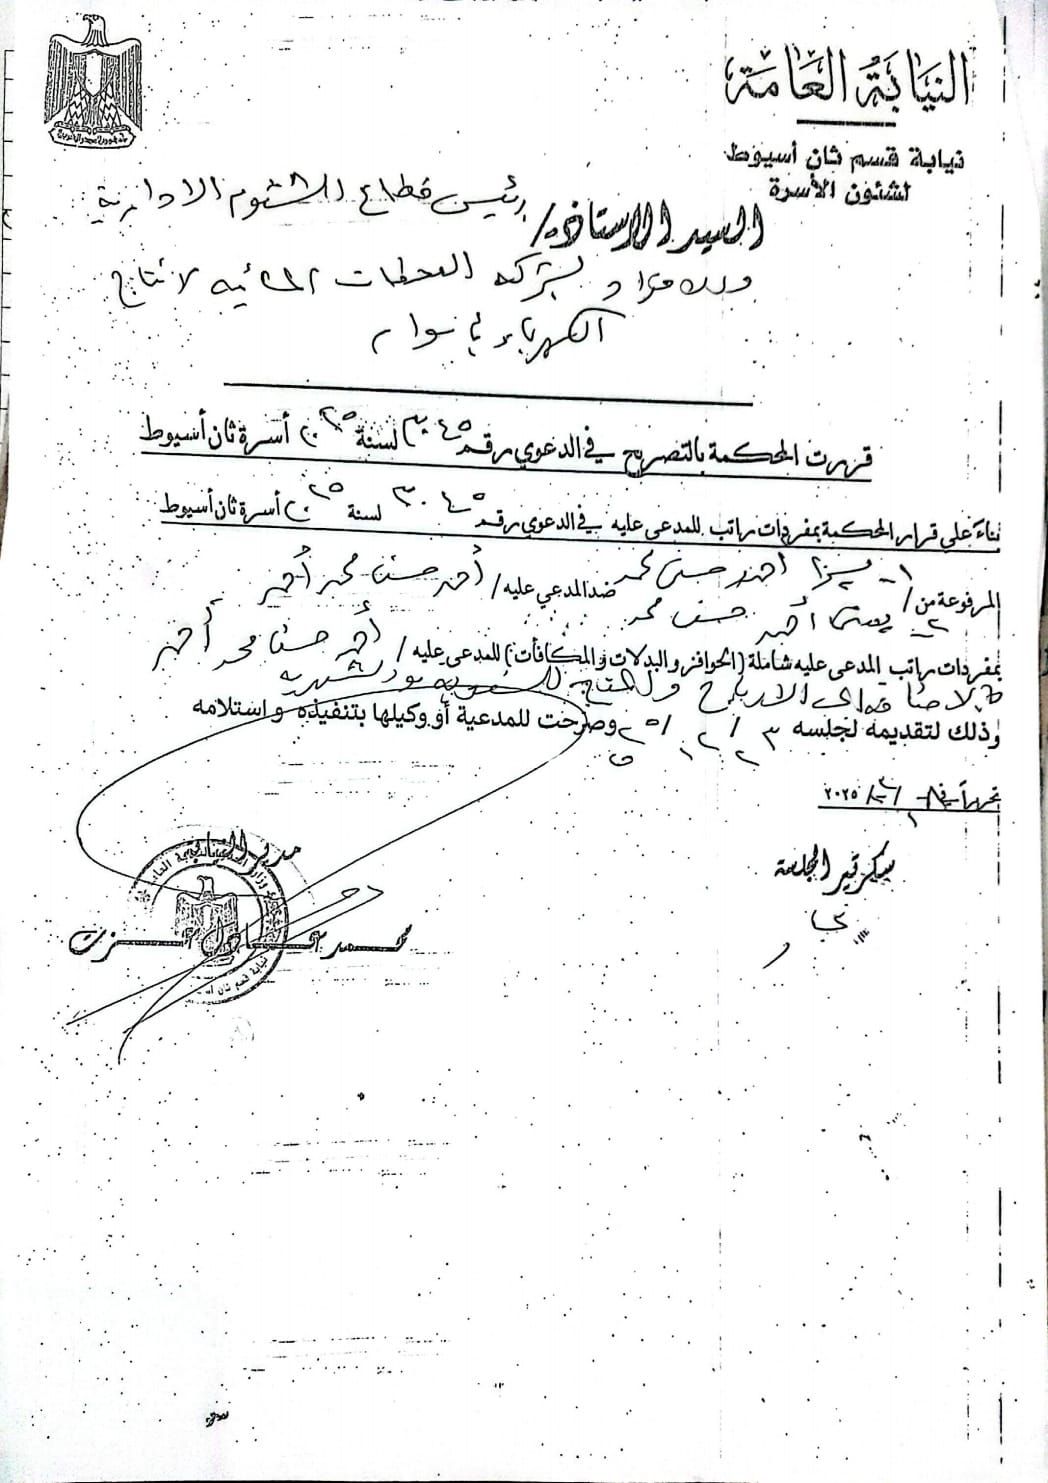 النيابة العامة
نيابة قسم ثان أسيوط
لشئون الأسرة
السيد الاستاذ / رئيس قطاع الشئوم الادارية
بشركة المحطات المائيه لانتاج
الكهرباء باسوان
قررت المحكمة بالتصريح في الدعوي رقم ٣٠٤٥ لسنة ٢٠٢٥ أسرة ثان أسيوط
بناءً علي قرار المحكمة بمفردات راتب للمدعى عليه في الدعوي رقم ٣٠٤٥ لسنة ٢٠٢٥ أسرة ثان أسيوط
المرفوعة من / ١- احمد حسن محمد ضد المدعي عليه / أحمد حسن محمد أحمد
٢- أحمد حسن محمد
بمفردات راتب المدعى عليه شاملة (الحوافز والبدلات والمكافآت) للمدعى عليه / أحمد حسن محمد أحمد
بالاضافه الى الارباح
وذلك لتقديمه لجلسه ٢٣ / ١٢ / ٢٠٢٥ وصرحت للمدعية أو وكيلها بتنفيذه واستلامه
تحريراً في / / ٢٠٢٥
سكرتير الجلسة
مدير النيابة
محمد عادل عزت